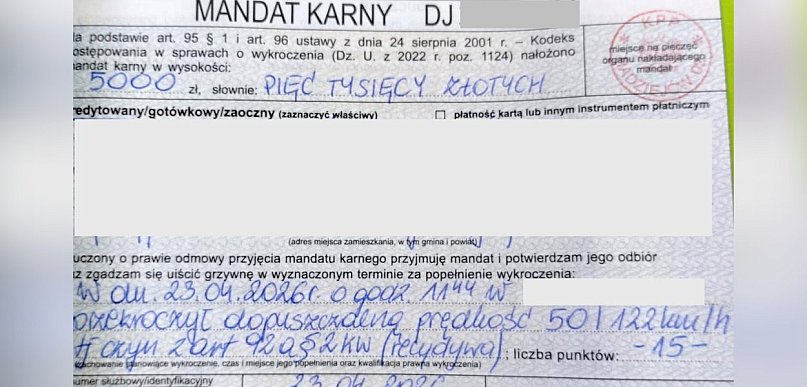 MANDAT KARNY DJ
la podstawie art. 95 § 1 i art. 96 ustawy z dnia 24 sierpnia 2001 r. – Kodeks
ostępowania w sprawach o wykroczenia (Dz. U. z 2022 r. poz. 1124) nałożono
mandat karny w wysokości:
5000 zł, słownie: PIĘĆ TYSIĘCY ZŁOTYCH
miejsce na pieczęć
organu nakładającego
mandat
redytowany/gotówkowy/zaoczny (zaznaczyć właściwy)
płatność kartą lub innym instrumentem płatniczym
(adres miejsca zamieszkania, w tym gmina i powiat)
uczony o prawie odmowy przyjęcia mandatu karnego przyjmuję mandat i potwierdzam jego odbiór
az zgadzam się uiścić grzywnę w wyznaczonym terminie za popełnienie wykroczenia:
W dn. 23.04.2026r. o godz. 11 44 w
przekroczył dopuszczalną prędkość 50/122km/h
tj czyn z art 92a§2KW (recydywa); liczba punktów: -15-
(zachowanie stanowiące wykroczenie, czas i miejsce jego popełnienia oraz kwalifikacja prawna wykroczenia)
umer służbowy/identyfikacyjny
23.04.2026